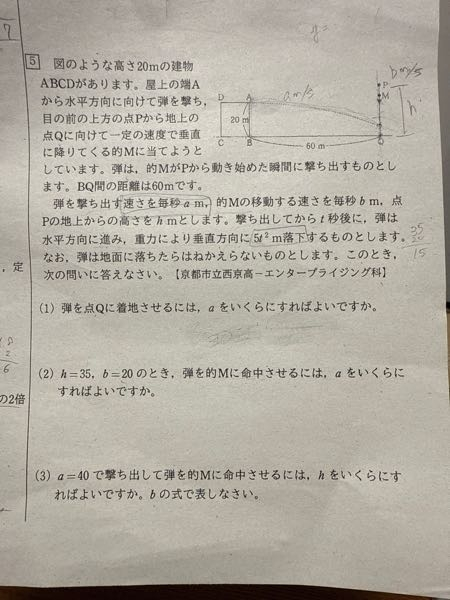 7
y=
5 図のような高さ20mの建物
ABCDがあります。屋上の端A
から水平方向に向けて弾を撃ち,
目の前の上方の点Pから地上の
点Qに向けて一定の速度で垂直
に降りてくる的Mに当てようと
しています。弾は,的MがPから動き始めた瞬間に撃ち出すものとし
ます。BQ間の距離は60mです。
D A a m/s b m/s P M h
20 m
C B 60 m Q
弾を撃ち出す速さを毎秒 a m,的Mの移動する速さを毎秒 b m,点
Pの地上からの高さを h m とします。撃ち出してから t 秒後に,弾は
水平方向に進み,重力により垂直方向に 5t² m落下するものとします。
なお,弾は地面に落ちたらはねかえらないものとします。このとき,
次の問いに答えなさい。【京都市立西京高-エンタープライジング科】
35
20
15
,定
(1) 弾を点Qに着地させるには,a をいくらにすればよいですか。
(2) h=35,b=20 のとき,弾を的Mに命中させるには,a をいくらに
すればよいですか。
6
の2倍
(3) a=40 で撃ち出して弾を的Mに命中させるには,h をいくらにす
ればよいですか。b の式で表しなさい。